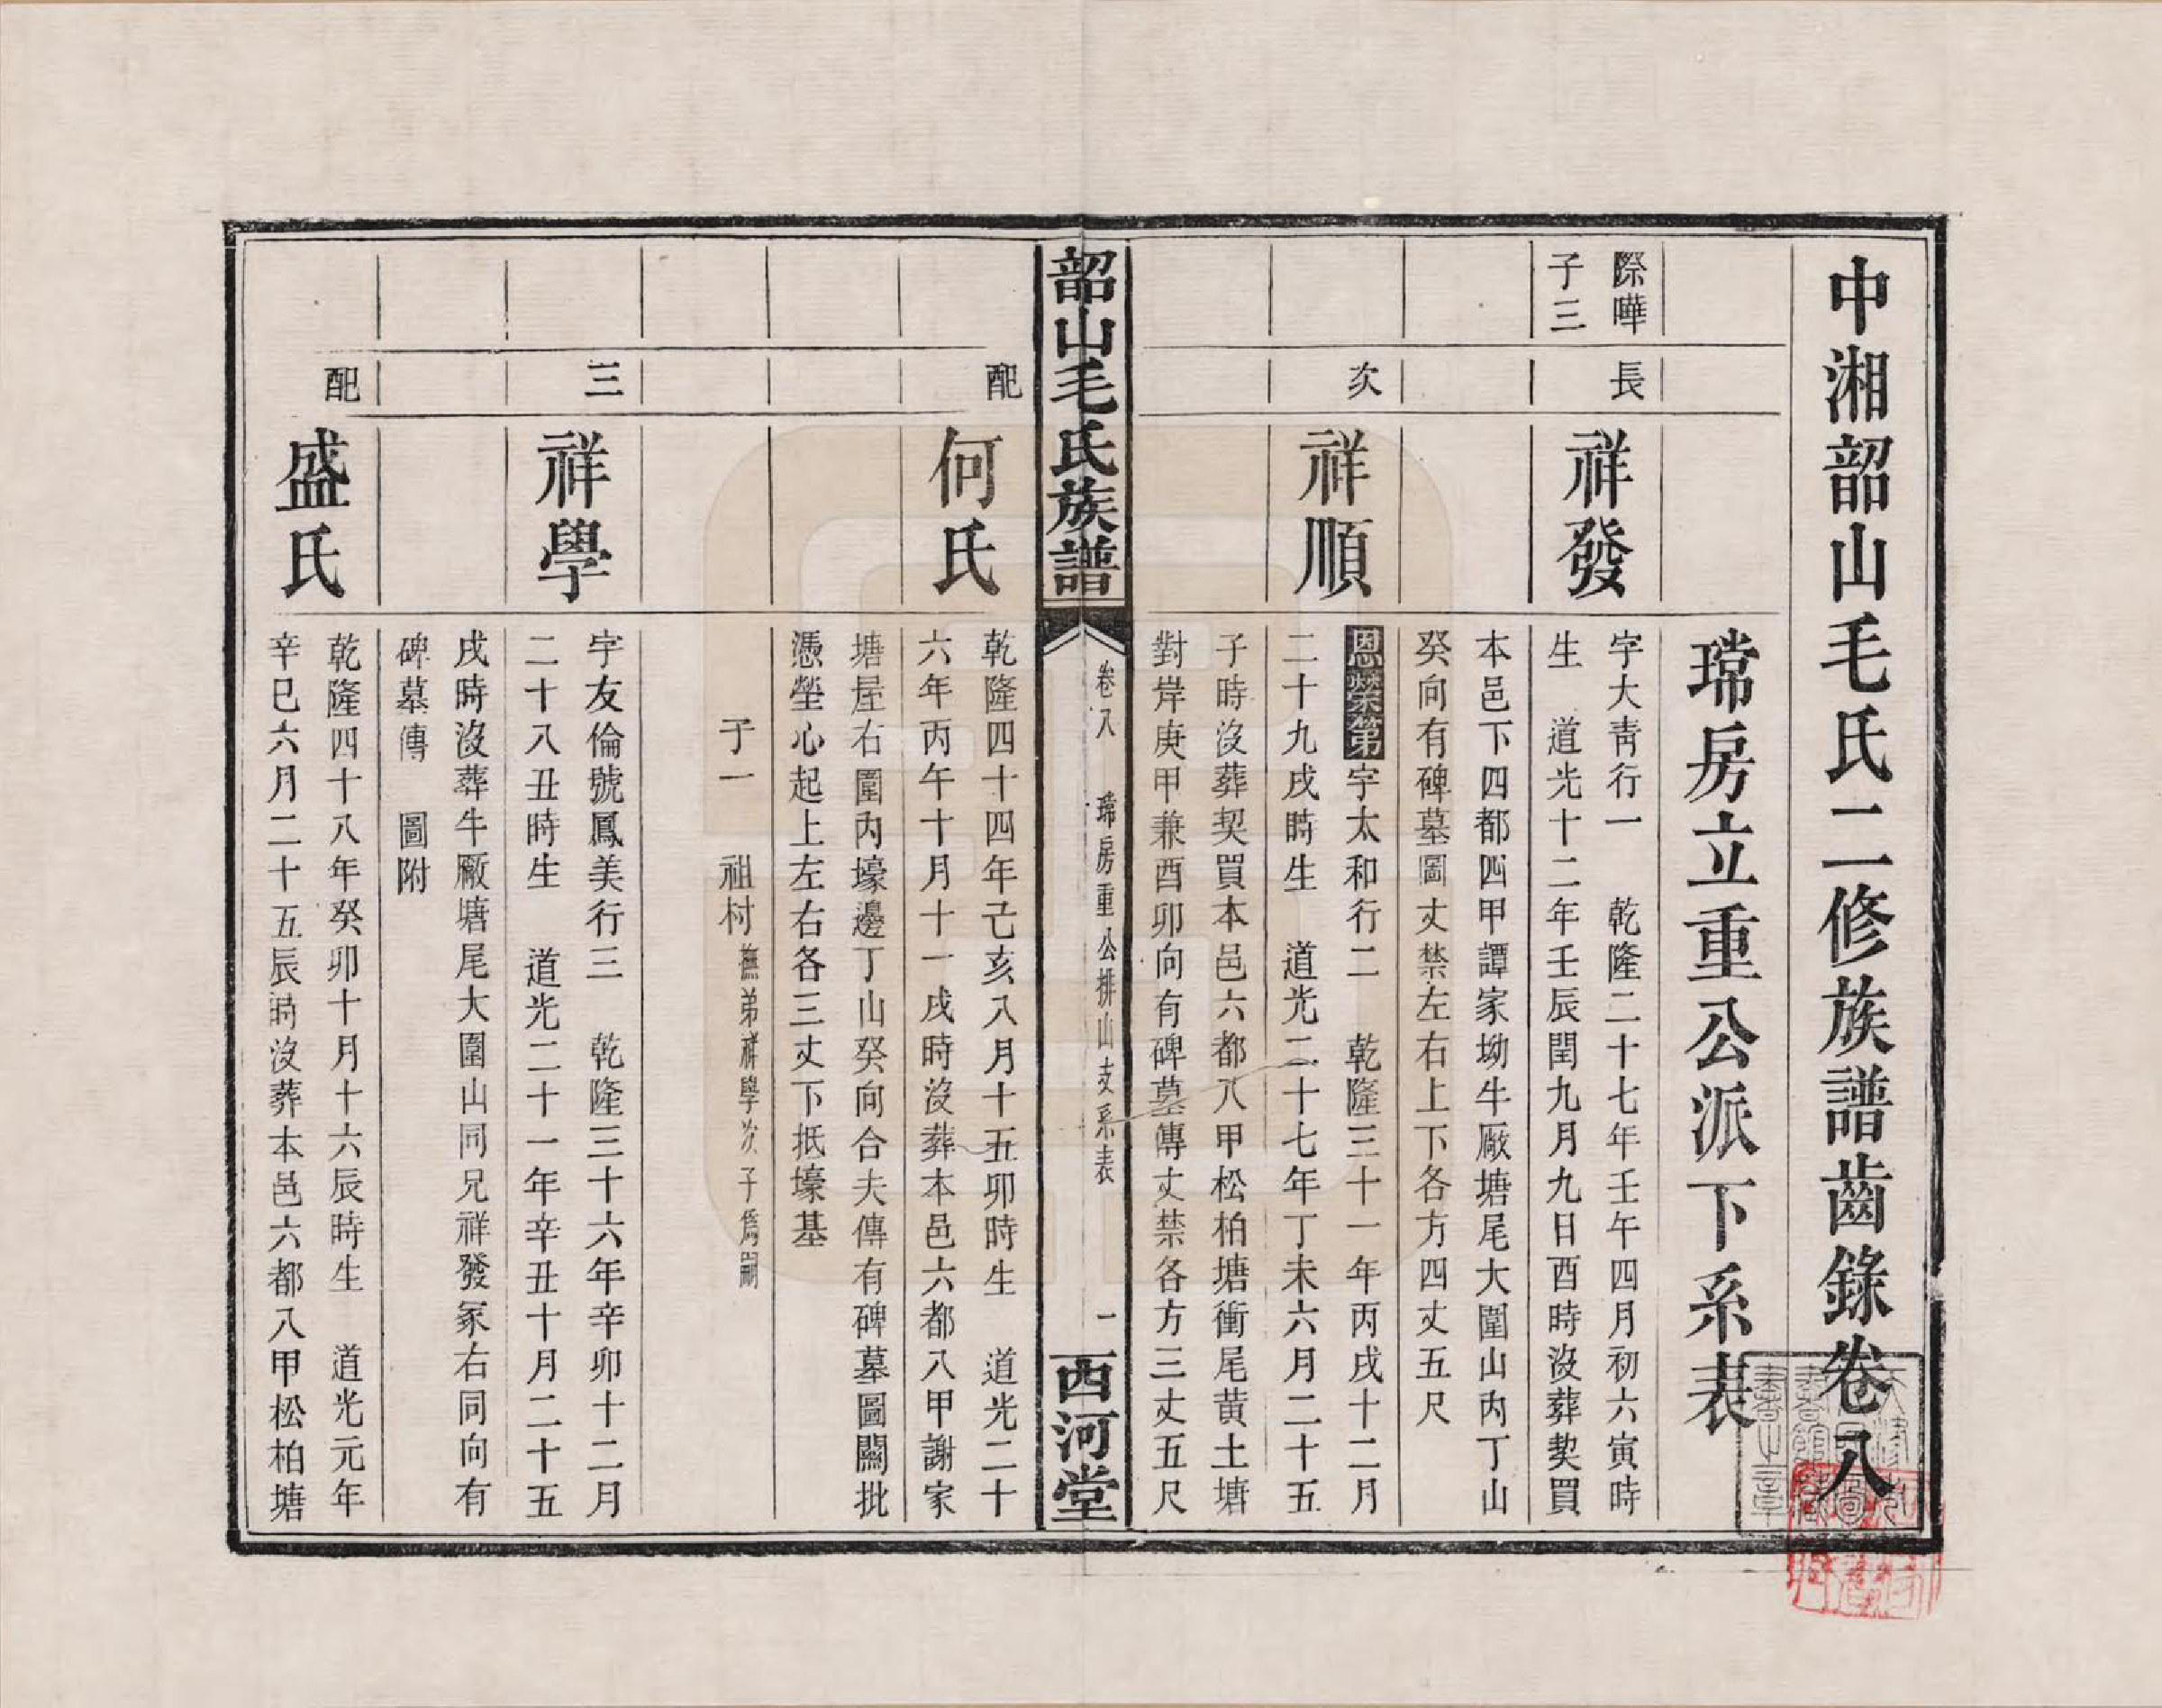 中湘韶山毛氏二修族譜齒錄卷八
瑺房立重公派下系表
際曄
子三
長
祥發
字大靑行一 乾隆二十七年壬午四月初六寅時
生 道光十二年壬辰閏九月九日酉時沒葬契買
本邑下四都四甲譚家坳牛厰塘尾大圍山內丁山
癸向有碑墓圖丈禁左右上下各方四丈五尺
次
祥順
恩榮第字太和行二 乾隆三十一年丙戌十二月
二十九戌時生 道光二十七年丁未六月二十五
子時沒葬契買本邑六都八甲松柏塘衝尾黃土塘
對岸庚甲兼酉卯向有碑墓傳丈禁各方三丈五尺
韶山毛氏族譜
卷八 瑺房重公排山支系表
一
西河堂
配
何氏
乾隆四十四年己亥八月十五卯時生 道光二十
六年丙午十月十一戌時沒葬本邑六都八甲謝家
塘屋右圍內壕邊丁山癸向合夫傳有碑墓圖關批
憑塋心起上左右各三丈下抵壕基
子一 祖村撫弟祥學次子爲嗣
三
祥學
字友倫號鳳美行三 乾隆三十六年辛卯十二月
二十八丑時生 道光二十一年辛丑十月二十五
戌時沒葬牛厰塘尾大圍山同兄祥發冢右同向有
碑墓傳 圖附
配
盛氏
乾隆四十八年癸卯十月十六辰時生 道光元年
辛巳六月二十五辰時沒葬本邑六都八甲松柏塘